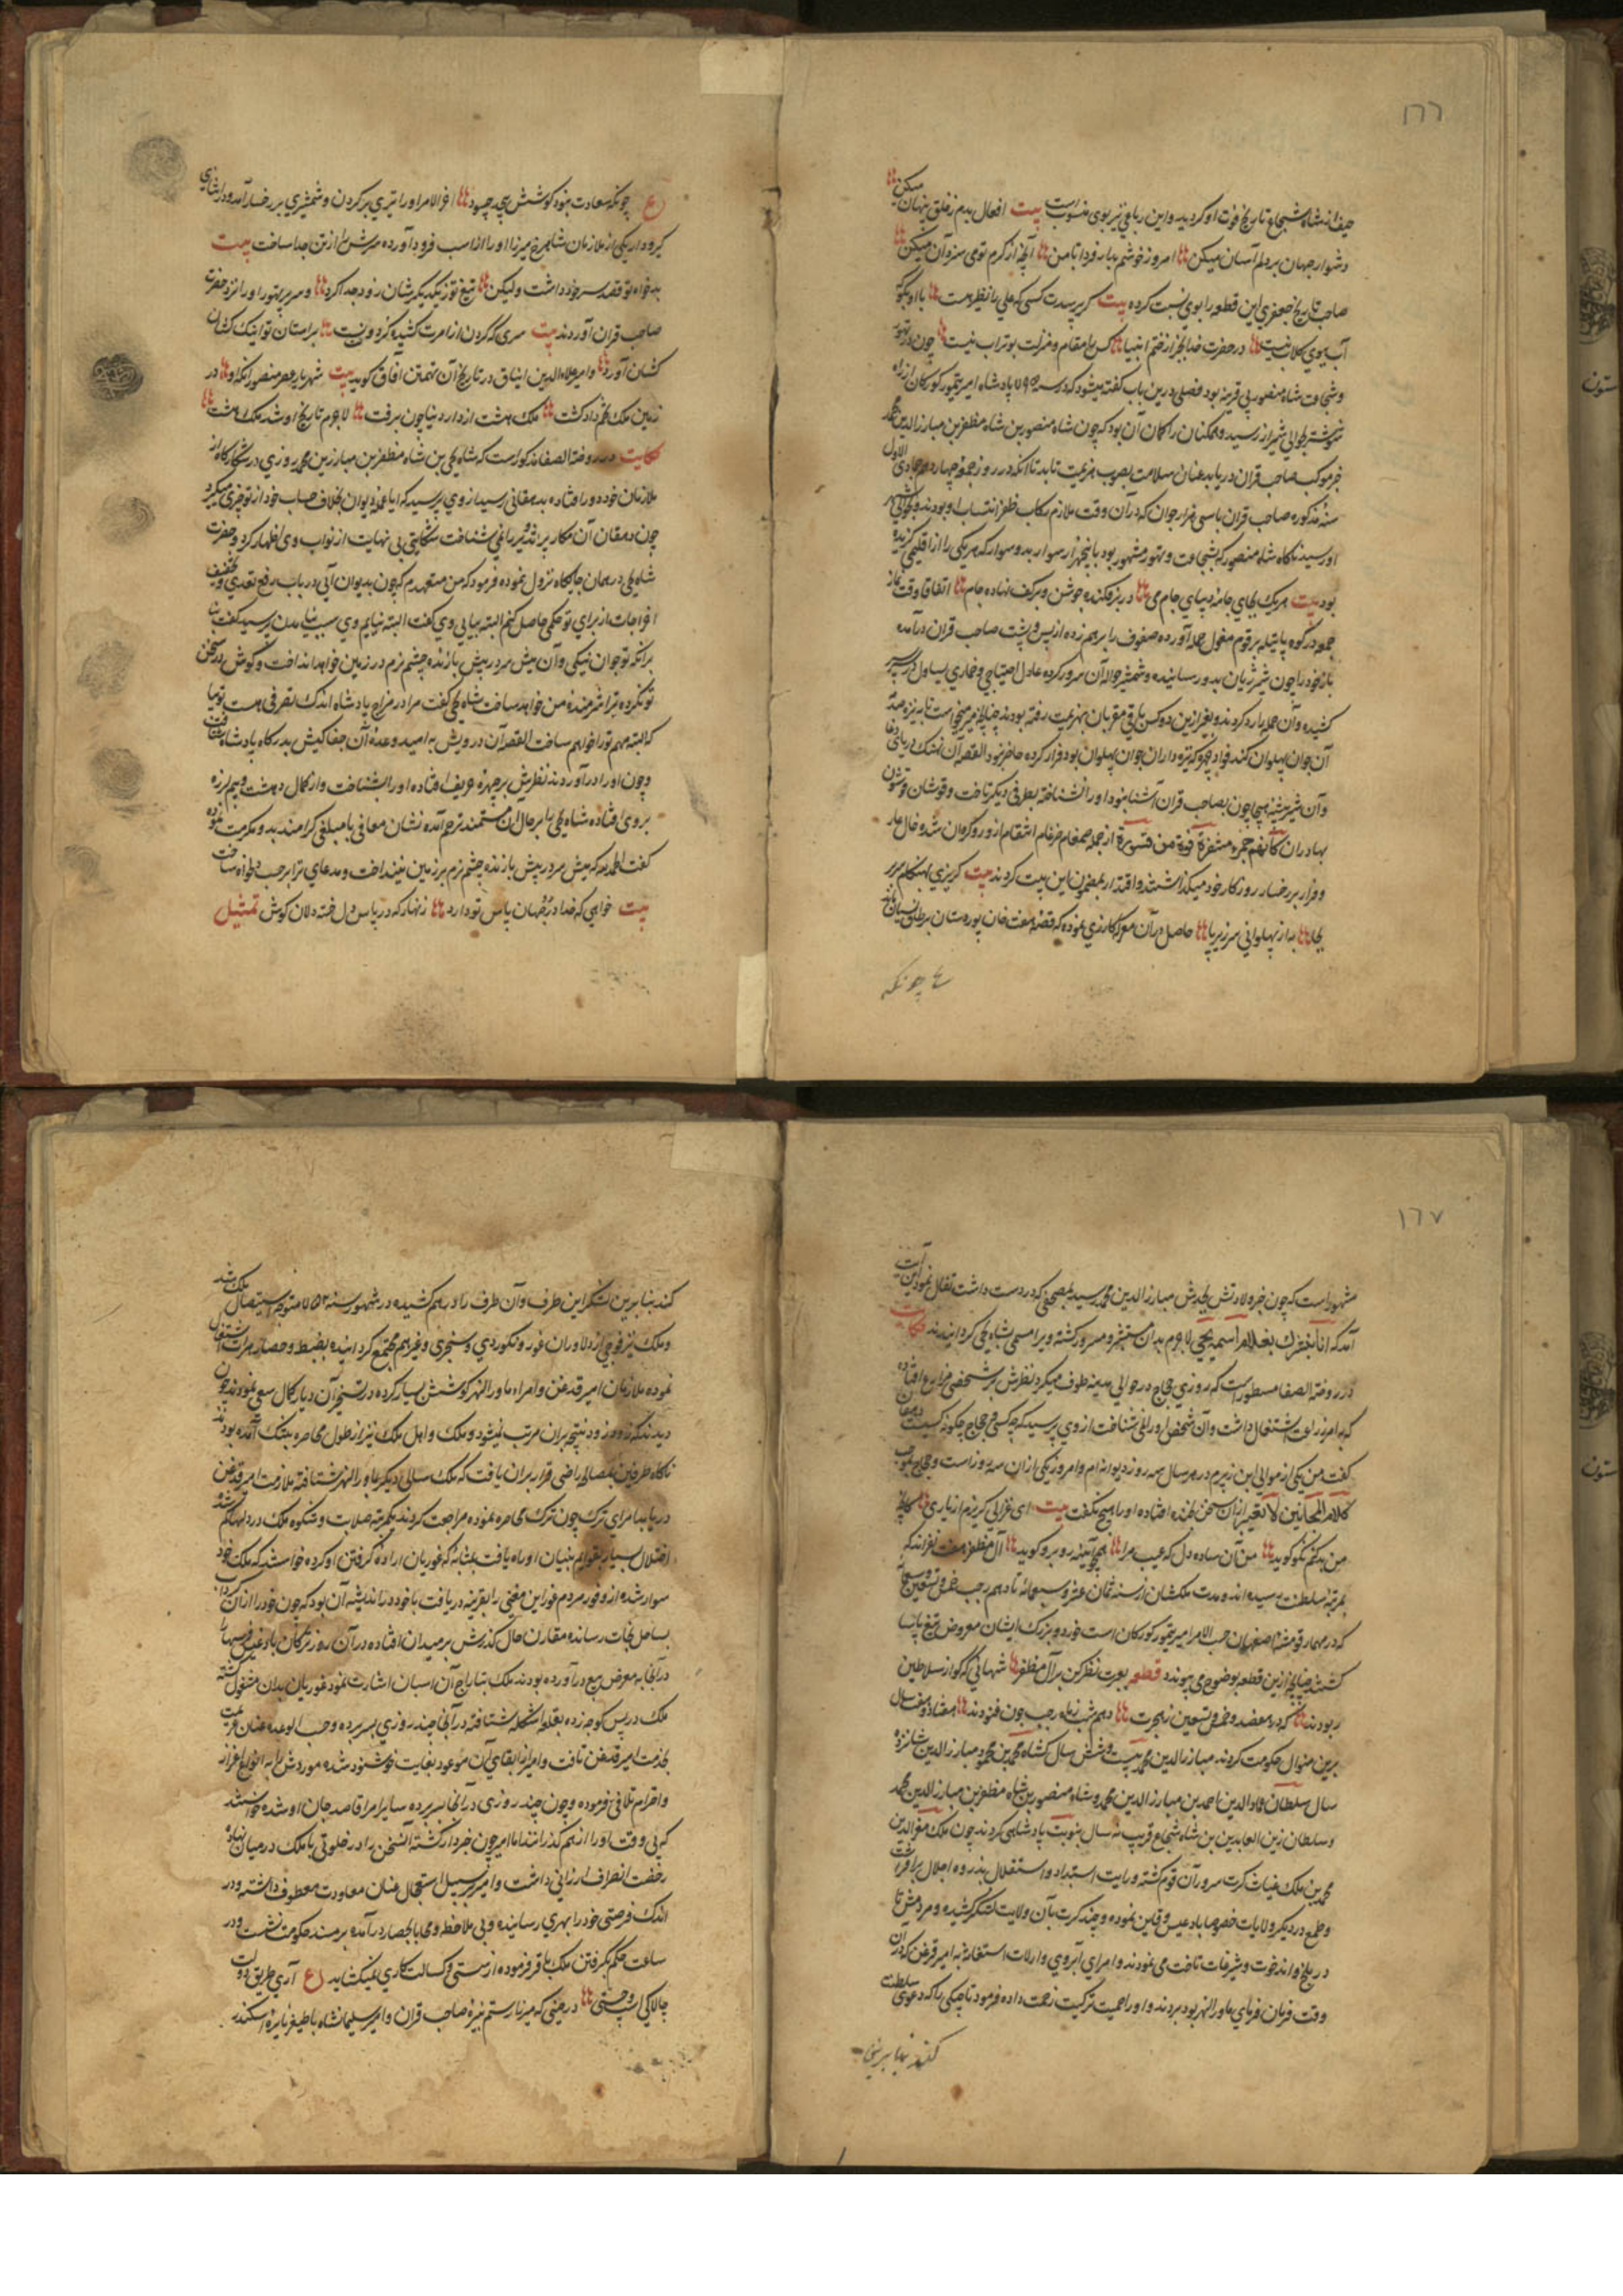 ١٦٦
حیف از شاه شجاع تاریخ فوت او کردید و این رباعی نیز بوی منسوب است بیت افعال بدم زخلق پنهان میکن
دشوار جهان بر دلم آسان میکن امروز خوشم بدار و فردا با من آنچه از کرم تو می سزد آن میکن
صاحب تاریخ جعفری این قطعه را بوی نسبت کرده بیت کر پرسدت کسی که علی را نظیر هست با او بکو
در حضرت خدا بجز از ختم انبیا کس را مقام و منزلت بوتراب نیست چون در تهور
و شجاعت شاه منصور بی قرینه بود فصلی درین باب کفته میشود که در سنه ۷۹۵ پادشاه امیر تیمور کورکان از راه
شوشتر بحوالی شیراز رسید و همکنان را کمان آن بود که چون شاه منصور بن شاه مظفر بن مبارز الدین محمد
خبر موکب صاحب قران دریابد عنان سلامت بصوب هزیمت تابد تا آنکه در روز جمعه چهاردهم جمادی الاول
سنه مذکوره صاحب قران با سی هزار جوان که در آن وقت ملازم رکاب ظفر انتساب او بودند بحوالی
او رسید ناکاه شاه منصور که بشجاعت و تهور مشهور بود با پنجهزار سوار بدو سوار که هر یکی را از اقلیمی کزیده
بود بیت هر یک بجای جامه بپای جام می در بر فکنده جوشن و بر کف نهاده جام اتفاقا وقت نماز
جمعه در کوه پاتیله بر قوم مغول حمله آورده صفوف را بر هم زده از پس و پشت صاحب قران در آمده
باز خود را چون شیر ژیان بدو رسانیده و شمشیر حواله آن سرور کرده عادل اختاجی و قماری یساول سپر بر سر
کشیده و آن حمله را رد کردند و بغیر از این دو کس باقی مقربان بهزیمت رفته بودند
و آن شیر بیشه هیجا چون بصاحب قران آشنا نبود او را نشناخته بطرفی دیکر تاخت
بهادران کأنهم حمر مستنفرة فرت من قسورة از حمله صمصام ضرغام انتقام او رو کردان شد و خال عار
و فرار بر رخسار روزکار خود میکذاشتند و اقتدا بمضمون این بیت کردند بیت کریزی بهنکام سر بر
بجا به از پهلوانی سر زیر پا حاصل در آن معرکه کارزاری نموده که قصه هفت خوان پور دستان بر طاق نسیان نهاد
ع چونکه
ع چونکه سعادت نبود کوشش چه سود آخر الامر او را تیری بر کردن و شمشیری بر رخسار آمد و در اثنای
کیر و دار یکی از ملازمان شاهرخ میرزا او را از اسب فرود آورده سرش را از تن جدا ساخت بیت
بد خواه تو قصد سر خود داشت ولیکن تیغ تو ز یکدیکرشان زود جدا کرد و سر پر تهور او را نزد حضرت
صاحب قران آوردند بیت سری که کردن از امرت کشید بر آستان تو اینک کشان
کشان آورد و امیر علاء الدین ایناق در تاریخ آن تهمتن آفاق کوید بیت شهریار عصر منصور آنکه او در
زمین ملک تخم داد کشت ملک هشت از دار دنیا چون برفت لاجرم تاریخ او شد ملک هشت
حکایت در روضة الصفا مذکور است که شاه یحیی بن شاه مظفر بن مبارز الدین محمد روزی در شکار کاه از
ملازمان خود دور افتاده بدهقانی رسید از وی پرسید که آیا عمله دیوان بخلاف حساب خود از تو چیزی میکیرد
چون دهقان آن مکار پر تزویر را نمی شناخت شکایتی بی نهایت از نواب وی اظهار کرد و حضرت
شاه یحیی در همان جایکاه نزول نموده فرمود که من متعهدم که چون بدیوان آیی در باب رفع تعدی و تخفیف
اخراجات از برای تو حکمی حاصل کنم البته بیایی وی کفت البته نیایم وی سبب نیامدن پرسید کفت بنا
بر آنکه تو جوان نیکی و آن میش مرد ریش بازنده چشم نرم در زمین خواهد انداخت و کوش بر سخن
تو نکرده ترا شرمنده من خواهد ساخت شاه یحیی کفت مرا در مزاج پادشاه اندک تصرفی هست تو بیا
که البته مهم تو را خواهم ساخت القصه آن درویش به امید وعده آن جفا کیش بدرکاه پادشاه شتافت
و چون او را در آوردند نظرش بر چهره حریف افتاده او را بشناخت و از کمال دهشت و بیم لرزه
بروی افتاده شاه یحیی را بر حال آن مستمند ترحم آمده نشان معافی با مبلغی کرامند بدو مکرمت نموده
کفت الحمد لله که میش مرد ریش بازنده چشم نرم بر زمین نینداخت و مدعای ترا بر حسب دلخواه ساخت
بیت خواهی که خدا در دو جهان پاس تو دارد زنهار که در پاس دل خسته دلان کوش تمثیل
١٦٧
مشهور است که چون خبر ولادتش بجدش مبارز الدین محمد رسید بمصحفی که در دست داشت تفأل نمود این آیت
آمد که انا نبشرک بغلام اسمه یحیی لاجرم بدان مستبشر و مسرور کشته ویرا مسمی بشاه یحیی کردانیدند حکایت
در روضة الصفا مسطور است که روزی حجاج در حوالی مدینه طوف میکرد نظرش بر شخصی مزارع افتاده
که به امر زراعت اشتغال داشت و آن شخص او را نمی شناخت از وی پرسید که چه کسی و حجاج چکونه کسیست دهقان
کفت من یکی از موالی این زبیرم در هر سال سه روز دیوانه ام و امروز یکی از آن سه روز است و حجاج بموجب
کلام المجانین لا تعتبر از آن سخن بخنده افتاده او را هیچ نکفت بیت ای غزالی کریزم از یاری که اکر
من بد کنم نکو کوید من آن ساده دل که عیب مرا همچو آیینه روبرو کوید آل مظفر هفت نفراند که
بمرتبه سلطنت رسیده اند و مدت ملکشان از سنه ثمان عشر و سبعمائه تا دهم رجب خمس و تسعین و سبعمائه
که در مهیار قومشه اصفهان حسب الامر امیر تیمور کورکان است خورد و بزرک ایشان معروض تیغ یاسا
کشتند چنانچه ازین قطعه بوضوح می پیوندد قطعه بعبرت نظر کن بر آل مظفر شهانی که کو از سلاطین
ربودند که در هفصد و خمس و تسعین ز هجرت دهم شب ز ماه رجب چون غنودند هفتاد و هفت سال
برین منوال حکومت کردند مبارز الدین محمد بیست و شش سال شاه محمود بن مبارز الدین شانزده
سال سلطان عماد الدین احمد بن مبارز الدین محمد و شاه منصور بن شاه مظفر بن مبارز الدین محمد
و سلطان زین العابدین بن شاه شجاع قریب نه سال بنوبت پادشاهی کردند چون ملک معز الدین
محمد بن ملک غیاث کرت سرور آن قوم کشته و رایت استبداد و استقلال بذروه اجلال برافراشت
و طمع در دیکر ولایات خصوصا بادغیس و قاین نموده و چند کرت بآن ولایت لشکر کشیده و مردمش تا
در بلخ و اندخود و شبرغان تاخت می نمودند و امرای آبروی و ارلات استغاثه به امیر قزغن که در آن
وقت فرمان فرمای ماوراء النهر بود بردند و او را حمیت ترکیت زحمت داده فرمود تاجیکی را که دعوی سلطنت
کند بنابرین
کند بنابرین لشکر این طرف و آن طرف را در هم کشیده در شهور سنه ۷۵۲ متوجه استیصال ملک شد
و ملک نیز فوجی از دلاوران غور و نکودری و سنجری و غیر هم مجتمع کردانیده بضبط و حصار هرات اشتغال
نموده ملازمان امیر قدغن و امراء ماوراء النهر کوشش بسیار کرده در تسخیر آن دیار کمال سعی نمودند چون
دیدند که زود زود نتیجه بر آن مرتب نمیشود و ملک و اهل ملک نیز از طول محاصره بتنک آمده بودند
ناکاه طرفین بمصالحه راضی قرار بر آن یافت که ملک سالی دیکر بماوراء النهر شتافته ملازمت امیر قدغن
دریابد امرای ترک چون ترک محاصره نموده مراجعت کردند یکمرتبه صلابت و شکوه ملک در دلها کم شد
اختلال بسیار بقوایم بنیان او راه یافت بمثابه که غوریان اراده کرفتن او کرده خواستند که ملک خود
سوار شده از وفور مردم غور این معنی را بقرینه دریافت با خود در اندیشه آن بود که چون خود را از آن کرداب
بساحل نجات رساند مقارن حال کذرش بر میدان افتاده در آن روز ترکمان بادغیس اسبها را
در آنجا به معرض بیع در آورده بودند ملک بتاراج آن اسبان اشارت نمود غوریان بدان مشغول کشته
ملک در پس کوچه زده بقلعه اشکلجه شتافته در آنجا چند روزی بسر برده و حسب الوعده عنان عزیمت
بخدمت امیر قدغن تافت و امیر از ایفای آن موعود بغایت خوشنود شده موردش را به انواع اعزاز
و احترام تلافی فرموده و چون چند روزی در آنجا بسر برده سایر امرا قاصد جان او شده خواستند
که بی وقت او را از هم کذرانند اما امیر چون خبردار کشته آن سخن را در خلوتی با ملک در میان نهاده
رخصت انصراف ارزانی داشت و امیر بر سبیل استعجال عنان معاودت معطوف داشته و در
اندک فرصتی خود را بهری رسانیده و بی ملاحظه و محابا بحصار در آمده بر مسند حکومت نشست و در
ساعت حکم بکرفتن ملک باقر فرموده از سستی و کسالت کاری نمیکشاید ع آری طریق دولت
چالاکی است و چستی در حینی که میرزا رستم نبیره صاحب قران و امیر سلیمانشاه باطفای نایره اسکندر